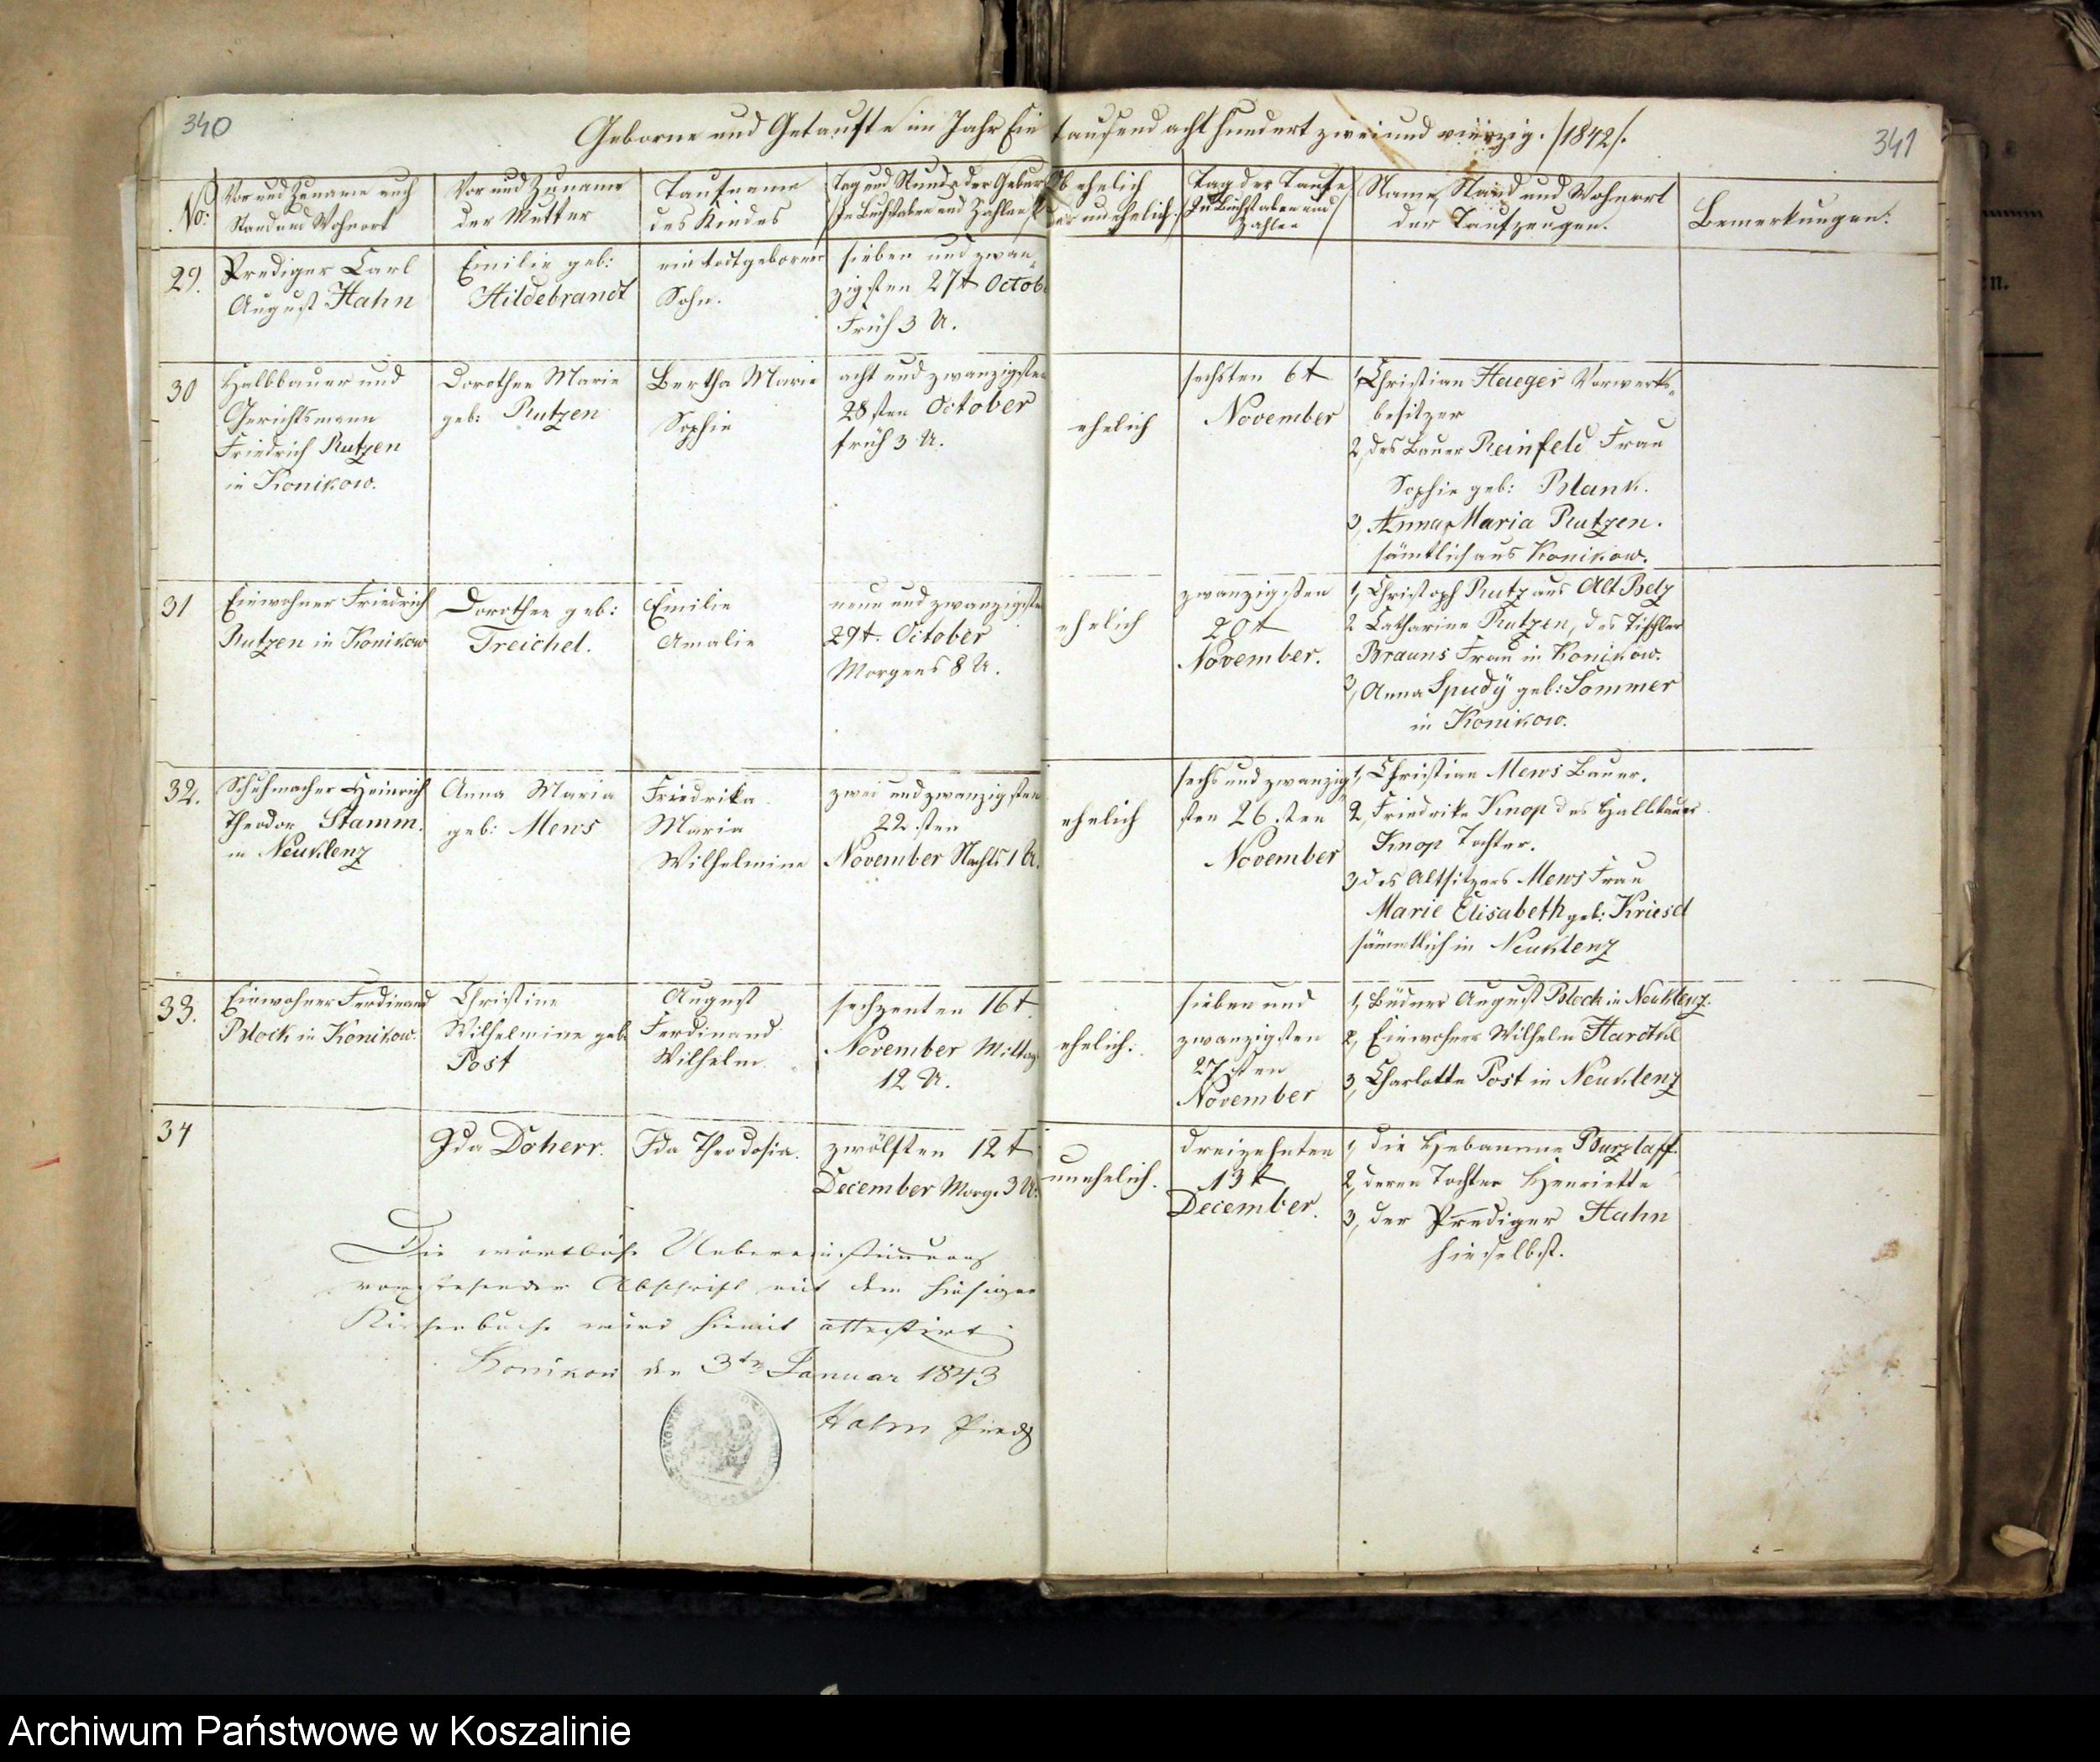 340
341
Geborne und Getaufte im Jahr Ein tausend acht hundert zwei und vierzig. /1842/.
No:
Vor und Zuname auch
Stand und Wohnort
Vor und Zuname
der Mutter
Taufname
des Kindes
Tag und Stunde der Geburt
/In Buchstaben und Zahlen/
Ob ehelich
oder unehelich.
Tag der Taufe
/In Buchstaben und
Zahlen/
Name, Stand und Wohnort
der Taufzeugen.
Bemerkungen.
29.
Prediger Carl
August Hahn
Emilie geb:
Hildebrandt
ein todtgeborner
Sohn.
sieben und zwan-
zigsten 27t Octob
Früh 3 U.
30
Halbbauer und
Gerichtsmann
Friedrich Rutzen
in Konikow.
Dorothee Marie
geb: Rutzen
Bertha Marie
Sophie
acht und zwanzigsten
28sten October
früh 3 U.
ehelich
sechsten 6t
November
1, Christian Haeger Vorwerks-
besitzer
2, des Bauer Reinfeld Frau
Sophie geb: Blank.
3, Anna Maria Rutzen.
sämtlich aus Konikow.
31
Einwohner Friedrich
Rutzen in Konikow
Dorothee geb:
Treichel.
Emilie
Amalie
neun und zwanzigsten
29t. October
Morgens 8 U.
ehelich
zwanzigsten
20t
November.
1, Christoph Rutz aus Alt Belz
2 Catharine Rutzen, des Tischler
Brauns Frau in Konikow.
3, Anna Spudÿ geb: Sommer
in Konikow.
32.
Schuhmacher Heinrich
Theodor Stamm.
in Neuklenz
Anna Maria
geb: Mews
Friedrika
Maria
Wilhelmine
zwei und zwanzigsten
22sten
November Nachts 1 U.
ehelich
sechs und zwanzig-
sten 26sten
November
1, Christian Mews Bauer.
2, Friedrike Knop des Halbbauer
Knop Tochter.
3 des Altsitzers Mews Frau
Marie Elisabeth geb: Kriesel
sämmtlich in Neuklenz
33.
Einwohner Ferdinand
Block in Konikow.
Christine
Wilhelmine geb
Post
August
Ferdinand
Wilhelm.
sechzenten 16t.
November Mittag
12 U.
ehelich.
sieben und
zwanzigsten
27sten
November
1, Büdner August Block in Neuklenz.
2, Einwohner Wilhelm
3, Charlotte Post in Neuklenz
34
Ida Doherr.
Ida Theodosia.
zwölften 12t
December Morg. 3 U.
unehelich.
dreizehnten
13t
December.
1, die Hebamme Purzlaff.
2, deren Tochter Henriette
3, der Prediger Hahn
hieselbst.
Die wörtliche Uebereinstimmung
vorstehender Abschrift mit dem hiesigen
Kirchenbuche wird hiemit attestirt
Konikow den 3ten Januar 1843
Hahn Pred
Archiwum Państwowe w Koszalinie